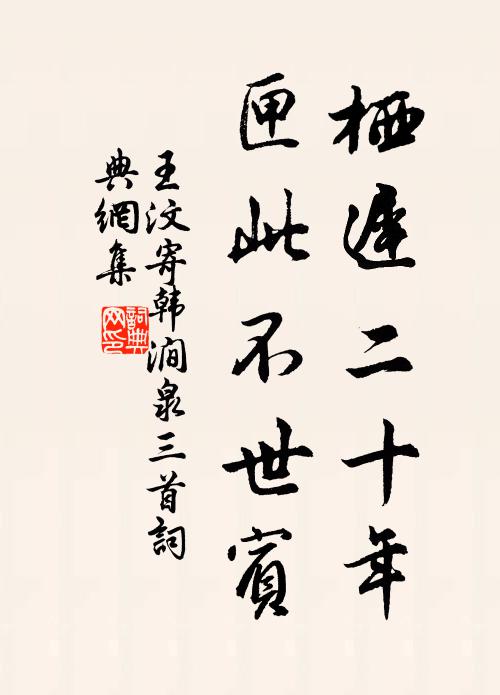 栖遲二十年
匣此不世賓
王汶寄韩澗泉三首詞
典網集
詞典
网印